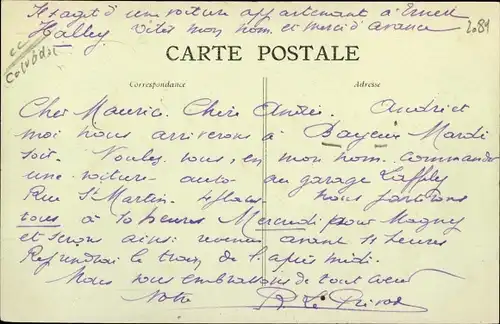 Il s'agit d'une voiture appartenant à Ernest
Halley. Dites mon nom et merci d'avance
2081
cc
Calvados
CARTE POSTALE
Correspondance
Adresse
Cher Maurice. Chère Andrée. Audriet
moi nous arriverons à Bayeux Mardi
soir. Voulez vous, en mon nom commander
une voiture-auto au garage Laffley
Rue St Martin. 4 places. Nous partirons
tous à 10 heures Mercredi pour Magny
et serons ainsi revenus avant 11 heures
Reprendrai le train de l'après midi.
Nous vous embrassons de tout cœur
Votre